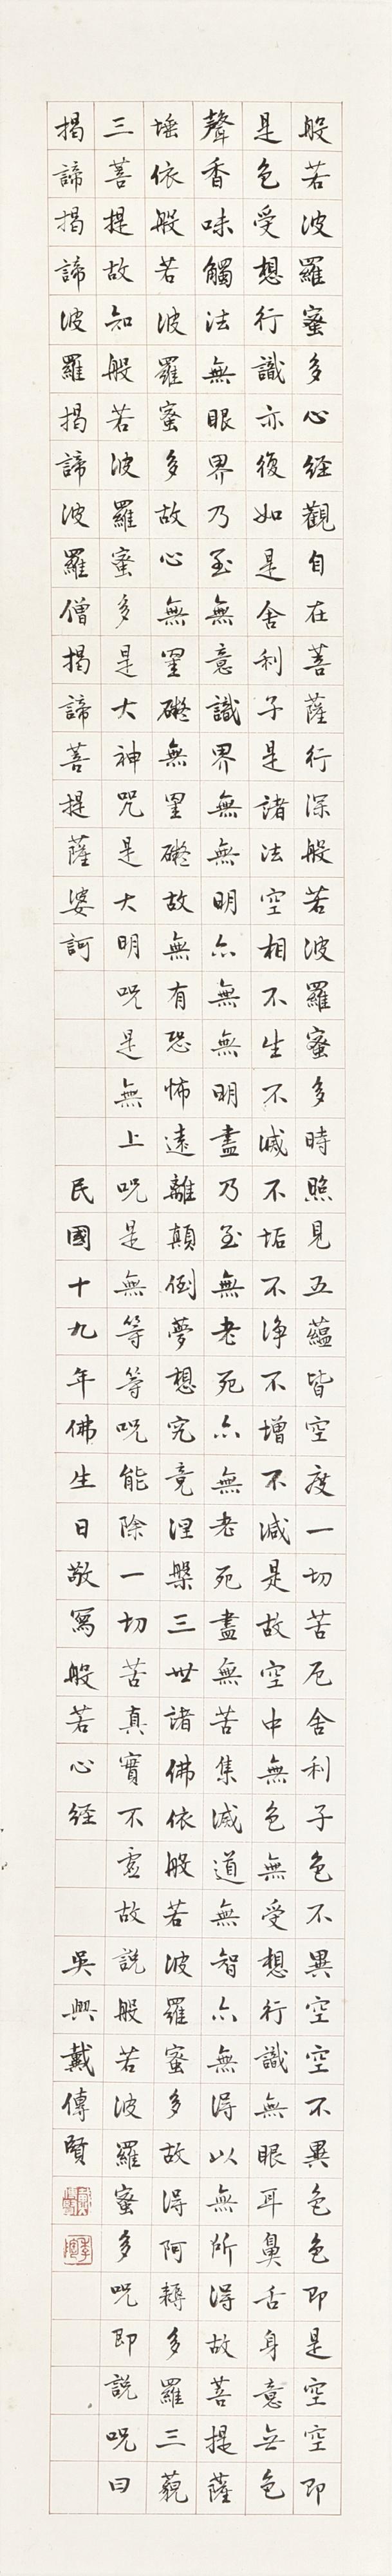 般若波羅蜜多心經觀自在菩薩行深般若波羅蜜多時照見五蘊皆空度一切苦厄舍利子色不異空空不異色色即是空空即
是色受想行識亦復如是舍利子是諸法空相不生不滅不垢不淨不增不減是故空中無色無受想行識無眼耳鼻舌身意无色
聲香味觸法無眼界乃至無意識界無無明亦無無明盡乃至無老死亦無老死盡無苦集滅道無智亦無得以無所得故菩提薩
埵依般若波羅蜜多故心無罣礙無罣礙故無有恐怖遠離顛倒夢想究竟涅槃三世諸佛依般若波羅蜜多故得阿耨多羅三藐
三菩提故知般若波羅蜜多是大神咒是大明咒是無上咒是無等等咒能除一切苦真實不虛故說般若波羅蜜多咒即說咒曰
揭諦揭諦波羅揭諦波羅僧揭諦菩提薩婆訶 民國十九年佛生日敬寫般若心經 吳興戴傳賢
戴傳賢
季陶